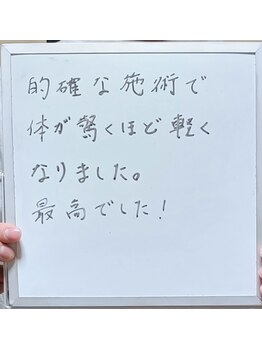 的確な施術で
体が驚くほど軽く
なりました。
最高でした！